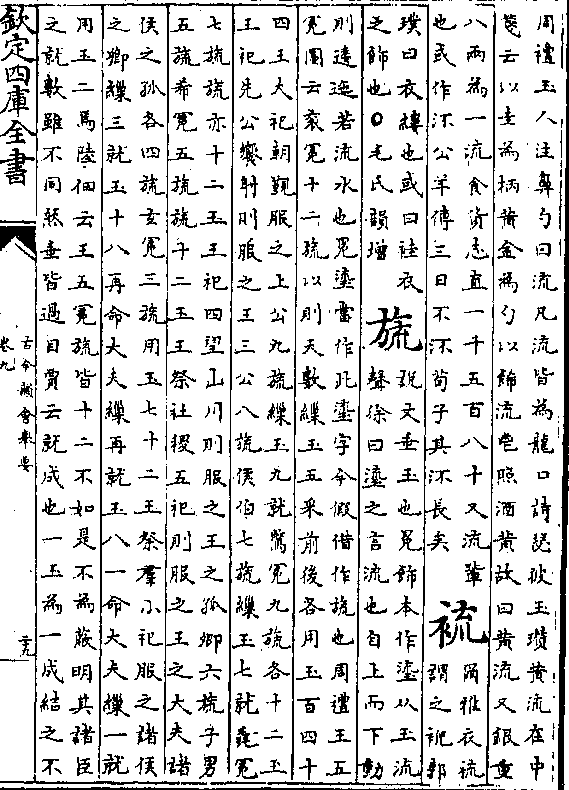 周禮玉人注鼻勺曰流凡流皆為龍口詩瑟彼玉瓚黃流在中
箋云以圭為柄黃金為勺以飾流鬯照酒黃故曰黃流又銀重
八兩為一流食貨志直一千五百八十又流輩
也或作㳅公羊傳三日不㳅荀子其㳅長矣
裗
爾雅衣裗
謂之䘽郭
璞曰衣縷也或曰袿衣
之飾也○毛氏韻增
旒
說文垂玉也冕飾本作瑬从玉流
聲徐曰瑬之言流也自上而下動
則逶迤若流水也冕瑬當作此瑬字今假借作旒也周禮王五
冕圖云袞冕十二旒以則天數繅玉五采前後各用玉百四十
四王大祀朝覲服之上公九旒繅玉九就鷩冕九旒各十二玉
王祀先公饗射則服之王三公八旒侯伯七旒繅玉七就毳冕
七旒旒亦十二玉王祀四望山川則服之王之孤卿六旒子男
五旒希冕五旒旒十二玉王祭社稷五祀則服之王之大夫諸
侯之孤各四旒玄冕三旒用玉七十二王祭羣小祀服之諸侯
之卿繅三就玉十八再命大夫繅再就玉八一命大夫繅一就
用玉二馬陸佃云王五冕旒皆十二不如是不為蔽明其諸臣
之就數雖不同然垂皆過目賈云就成也一玉為一成結之不
欽定四庫全書
古今韻會舉要
卷九